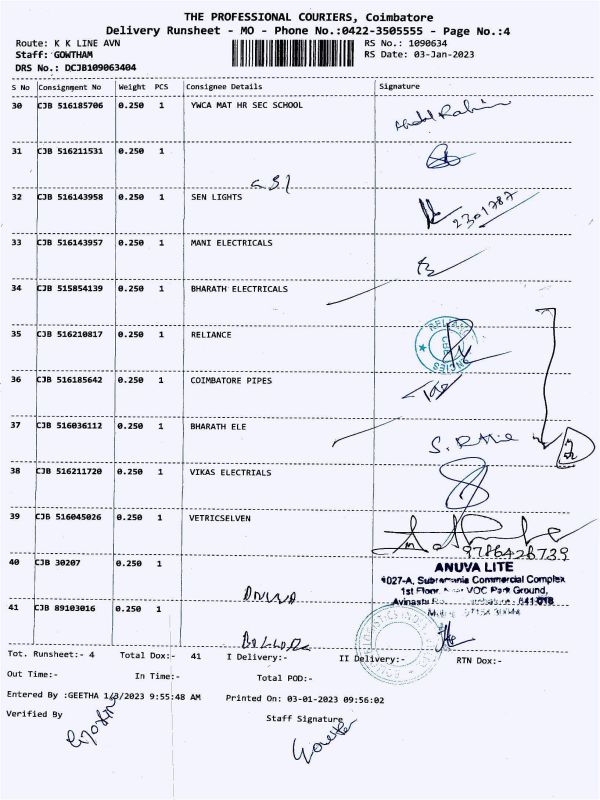 THE PROFESSIONAL COURIERS, Coimbatore
Delivery Runsheet - MO - Phone No.:0422-3505555 - Page No.:4
Route: K K LINE AVN RS No.: 1090634
Staff: GOWTHAM RS Date: 03-Jan-2023
DRS No.: DCJB109063404
S No Consignment No Weight PCS Consignee Details Signature
30 CJB 516185706 0.250 1 YWCA MAT HR SEC SCHOOL
31 CJB 516211531 0.250 1
32 CJB 516143958 0.250 1 SEN LIGHTS 2301787
33 CJB 516143957 0.250 1 MANI ELECTRICALS
34 CJB 515854139 0.250 1 BHARATH ELECTRICALS
35 CJB 516210817 0.250 1 RELIANCE
36 CJB 516185642 0.250 1 COIMBATORE PIPES
37 CJB 516036112 0.250 1 BHARATH ELE
38 CJB 516211720 0.250 1 VIKAS ELECTRIALS
39 CJB 516045026 0.250 1 VETRICSELVEN
9786426739
40 CJB 30207 0.250 1 ANUVA LITE
4027-A, Subramania Commercial Complex
1st Floor, VOC Park Ground,
Avinashi 641 018
41 CJB 89103016 0.250 1
Tot. Runsheet:- 4 Total Dox:- 41 I Delivery:- II Delivery:- RTN Dox:-
Out Time:- In Time:- Total POD:-
Entered By :GEETHA 1/3/2023 9:55:48 AM Printed On: 03-01-2023 09:56:02
Verified By Staff Signature